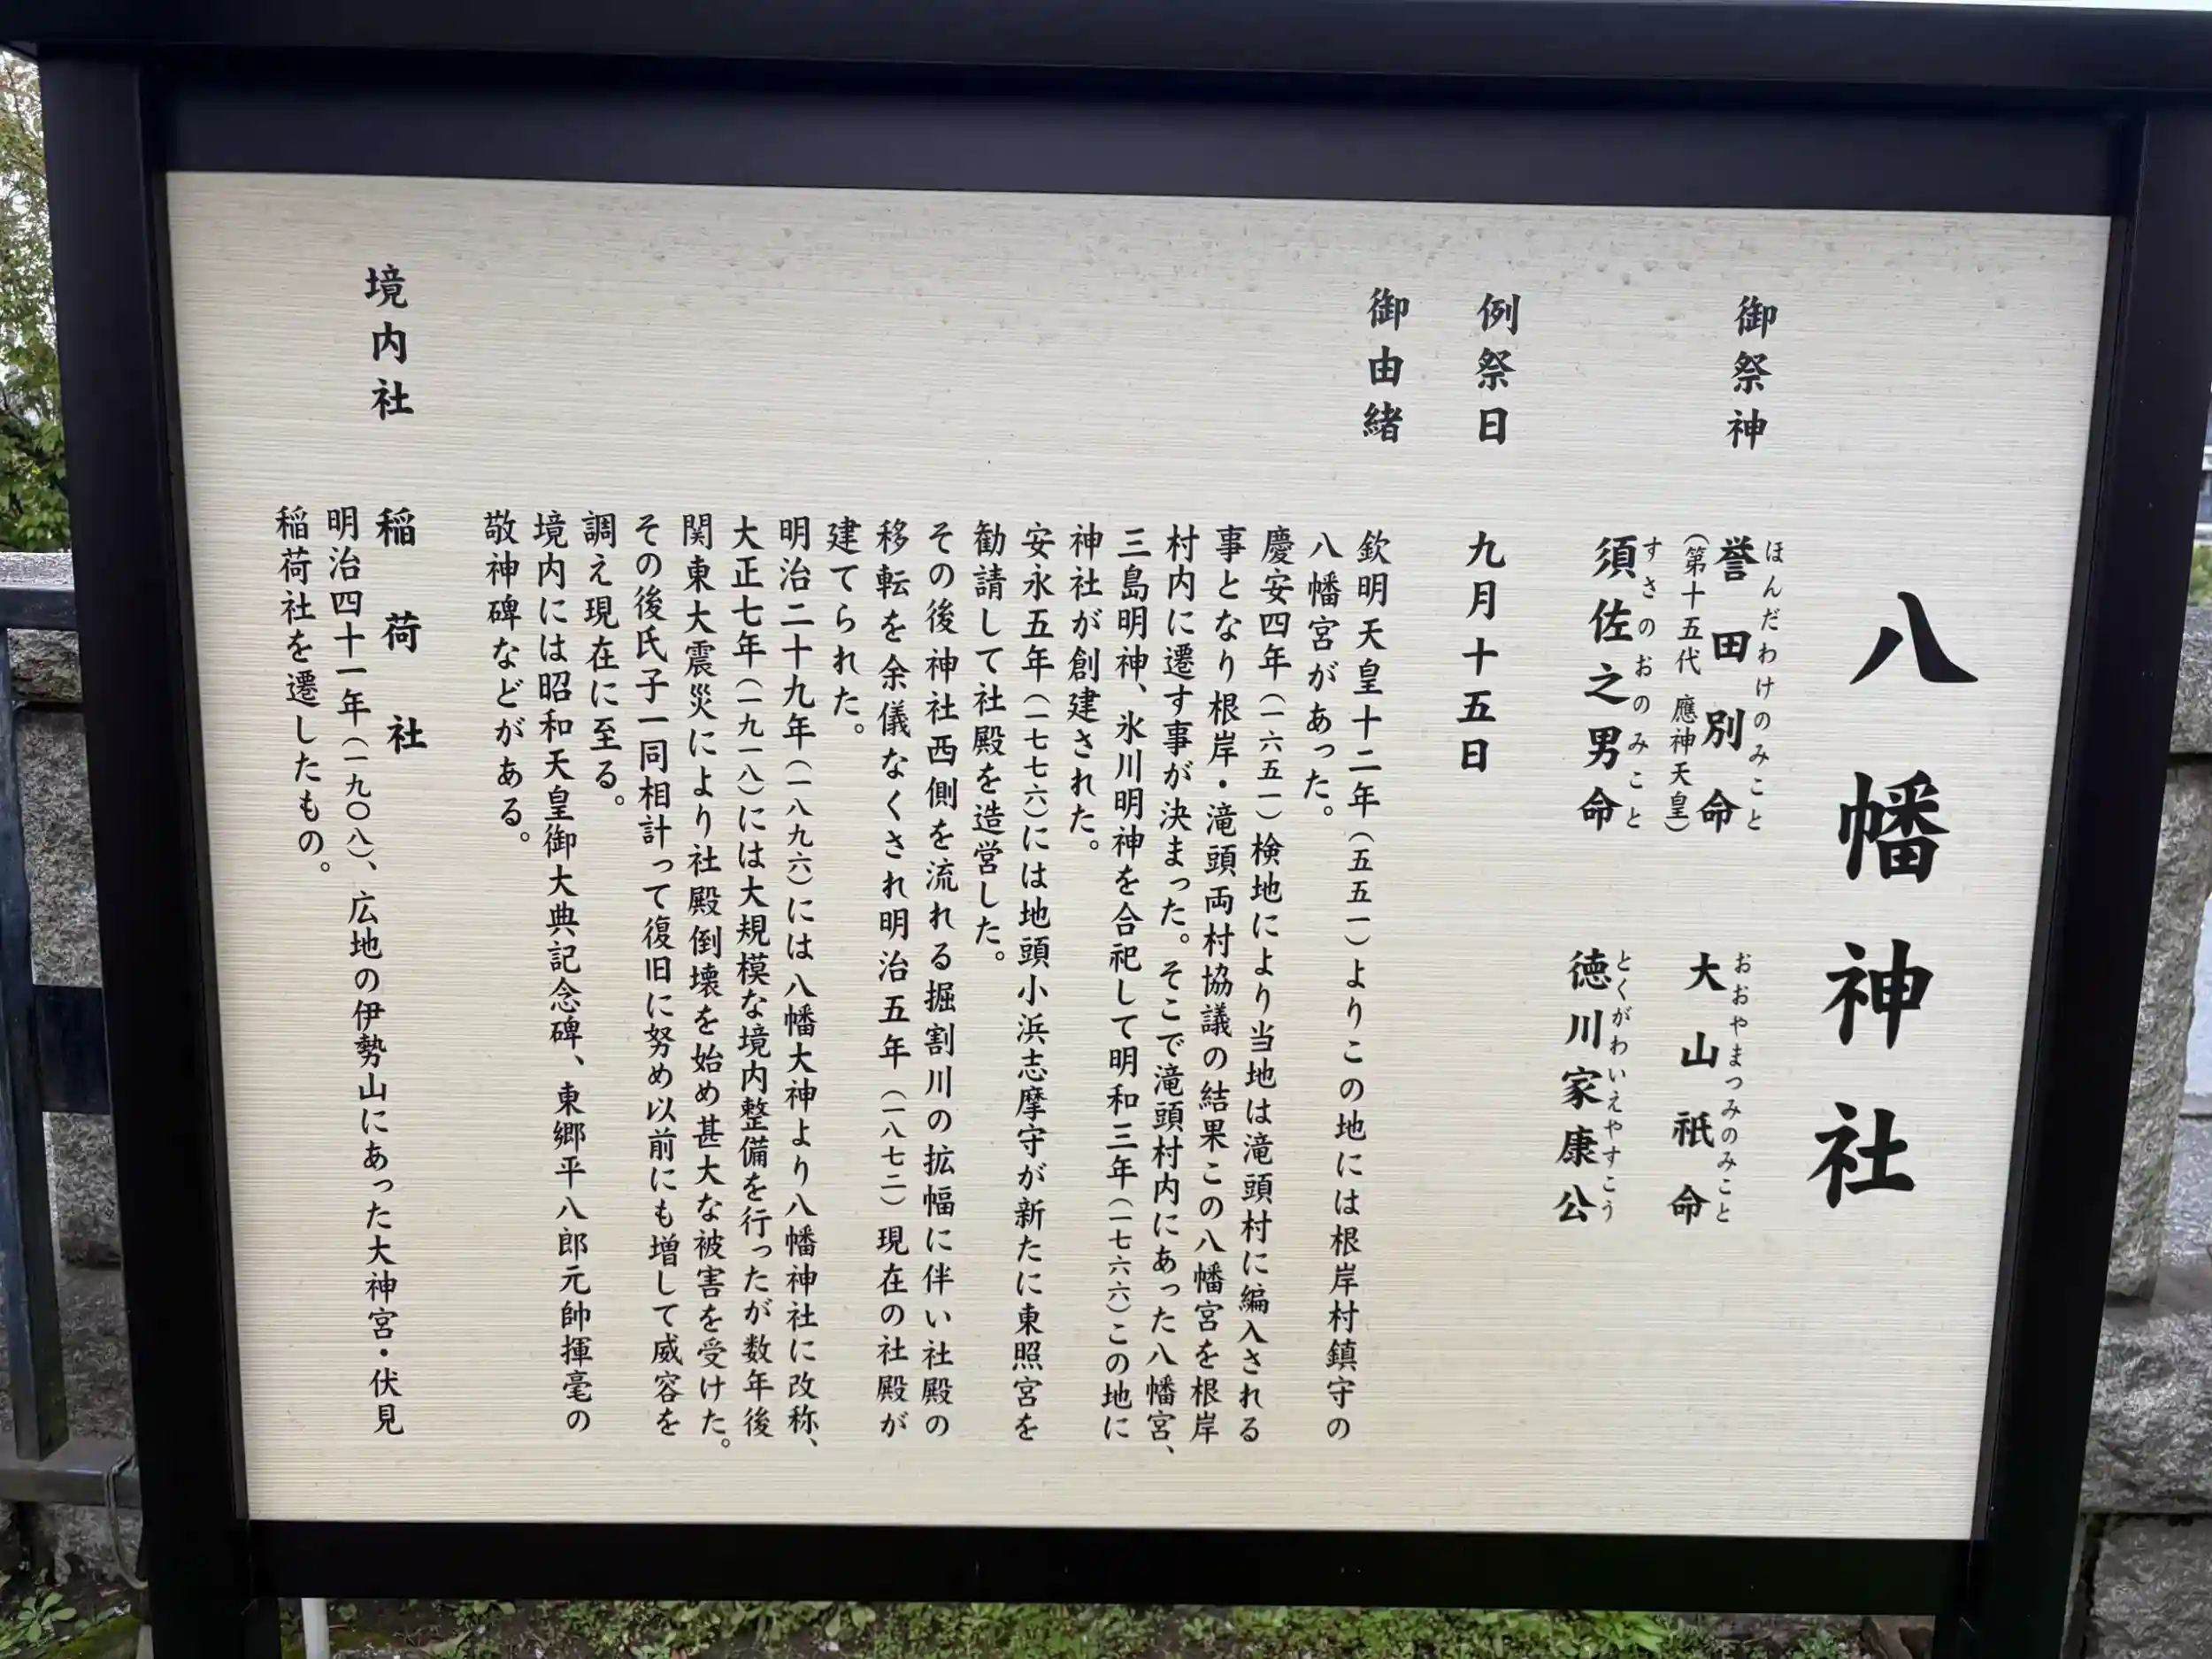 八幡神社
御祭神
ほんだわけのみこと
誉田別命
(第十五代 應神天皇)
おおやまつみのみこと
大山祇命
すさのおのみこと
須佐之男命
とくがわいえやすこう
徳川家康公
例祭日
九月十五日
御由緒
欽明天皇十二年(五五一)よりこの地には根岸村鎮守の
八幡宮があった。
慶安四年(一六五一)検地により当地は滝頭村に編入される
事となり根岸・滝頭両村協議の結果この八幡宮を根岸
村内に遷す事が決まった。そこで滝頭村内にあった八幡宮、
三島明神、氷川明神を合祀して明和三年(一七六六)この地に
神社が創建された。
安永五年(一七七六)には地頭小浜志摩守が新たに東照宮を
勧請して社殿を造営した。
その後神社西側を流れる掘割川の拡幅に伴い社殿の
移転を余儀なくされ明治五年(一八七二)現在の社殿が
建てられた。
明治二十九年(一八九六)には八幡大神より八幡神社に改称、
大正七年(一九一八)には大規模な境内整備を行ったが数年後
関東大震災により社殿倒壊を始め甚大な被害を受けた。
その後氏子一同相計って復旧に努め以前にも増して威容を
調え現在に至る。
境内には昭和天皇御大典記念碑、東郷平八郎元帥揮毫の
敬神碑などがある。
境内社
稲荷社
明治四十一年(一九〇八)、広地の伊勢山にあった大神宮・伏見
稲荷社を遷したもの。